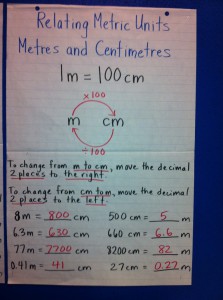 Relating Metric Units
Metres and Centimetres
1m = 100cm
x100
m cm
÷100
To change from m to cm, move the decimal
2 places to the right.
To change from cm to m, move the decimal
2 places to the left.
8m = 800 cm 500cm = 5 m
6.3m = 630 cm 660 cm = 6.6 m
77m = 7700 cm 8200cm = 82 m
0.41m = 41 cm 27cm = 0.27 m